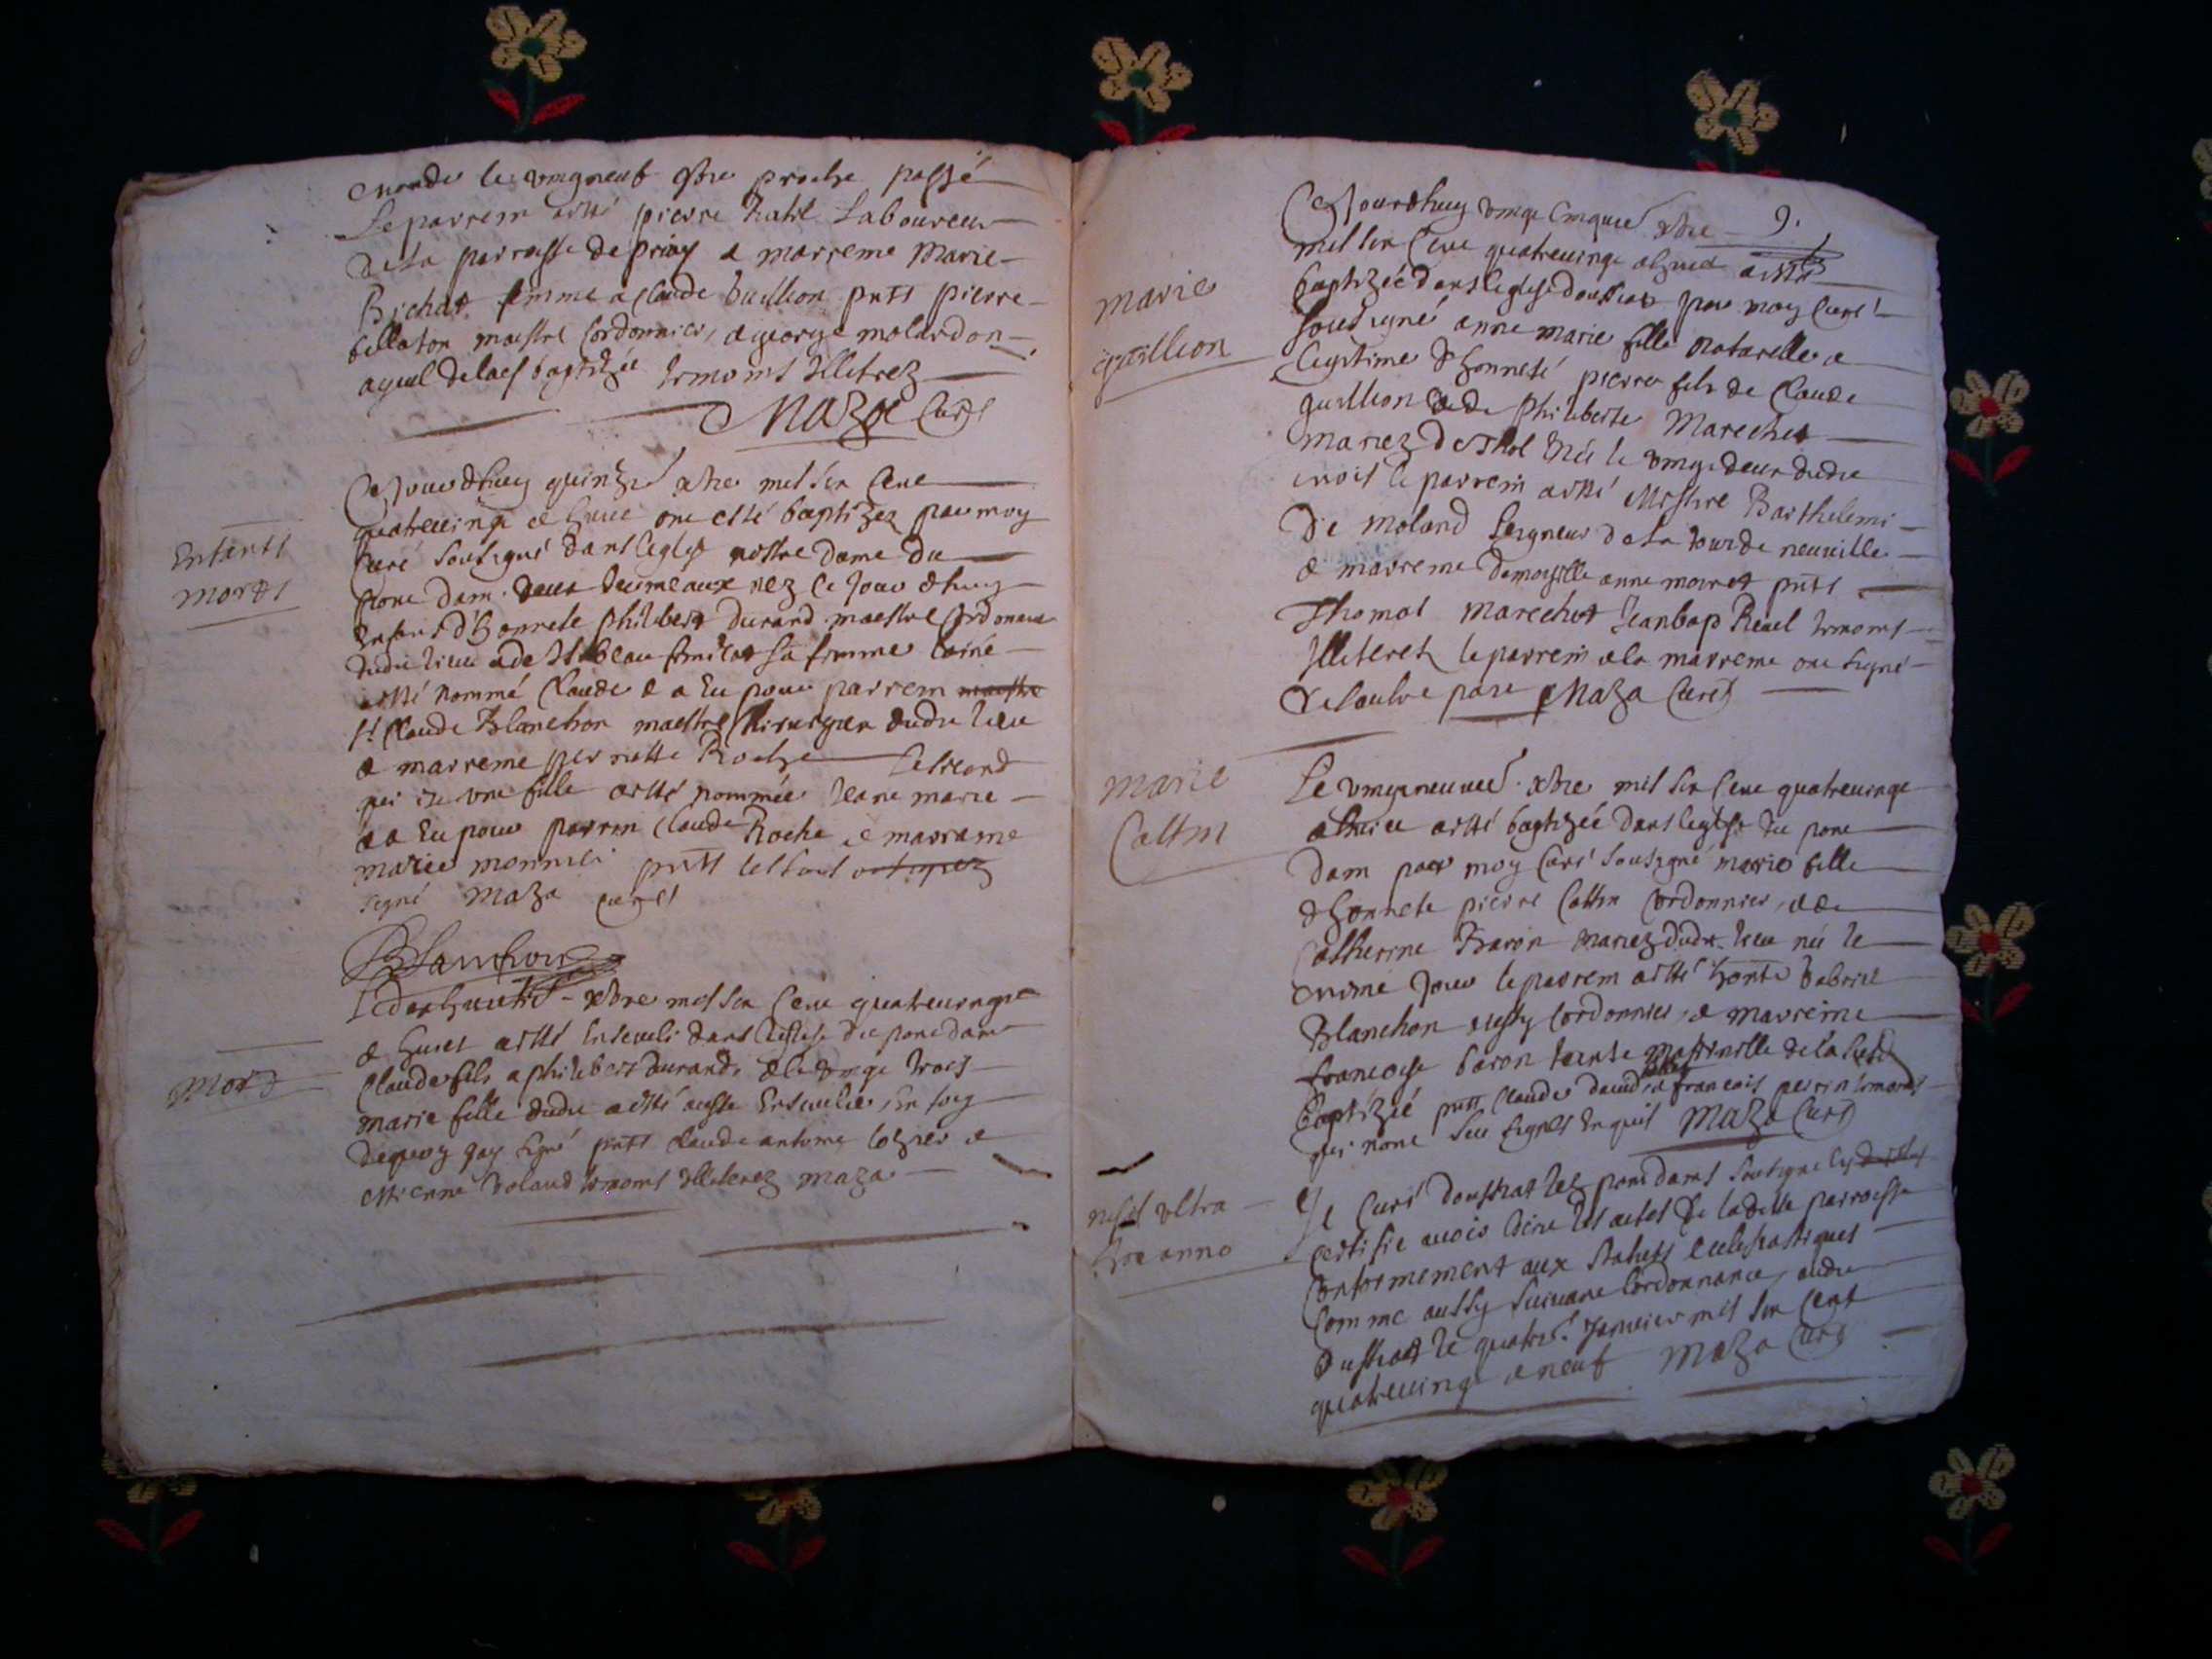 monde le vingneuf 9bre proche passé
Le parrein aesté pierre Laboureur
de la parroisse de priay & marreine Marie
Bichat femme a Claude Guillion pntt pierre
billaton maestre Cordonnier, & george molardon
ayeul de lad baptizée temoins Illitrez
Maza Curé
Cejourdhuy quinzie xbre mil six Cent
quatreving & huict ont esté baptizez par moy
Enfants
morts
Curé soubsigné dans leglise nostre dame du
pont dain deux Jeumeaux nez ce Jourdhuy
Enfans d'honnete philibert durand maestre Cordonnier
dudit lieu & de sa femme lainé
aesté nommé Claude & a Eu pour parrein maestre
Sr Claude Blanchon maestre Chirurgien dudit lieu
& marreine pernette Roche Le second
qui est une fille aesté nommée Jeane marie
& a Eu pour parrin Claude Roche & marraine
marie monnier pntt
signé Maza curé
Blanchon
Le dixhuictie xbre mil six Cent quatreving
& huict aesté Enseveli dans leglise du pont dain
mort
Claude fils a philibert durand & le vingt trois
marie fille dudit aesté aussi Ensevelie, En foy
dequoy Jay signé pntt claude antoine &
estienne Roland temoins Illiterez Maza
9.
Cejourdhuy vingt cinquie xbre
mil six Cent quatreving & huict aesté
marie
guillion
baptizée dans leglise doustrat par moy Curé
soubsigné anne marie fille naturelle &
legitime d'honneté pierre fils de Claude
guillion & de philiberte Marechet
mariez née le vingt deux dudit
mois le parrein aesté Messire Barthelemi
de moland seigneur de la tour de neuville
& marreine damoyselle anne moiret pntt
Thomas Marechet Jeanbap Revel temoins
Illiteretz le parrein & la marreine ont signé
Maza Curé
marie
Cattin
Le vingneuvie xbre mil six Cent quatreving
& huict aesté baptizée dans leglise du pont
dain par moy Curé soubsigné marie fille
d'honnete pierre Cattin Cordonnier, & de
Catherine Baron mariez dudit lieu née le
meme Jour le parrein aesté honte Gabriel
Blanchon aussy Cordonnier, & marreine
francoise baron tante maternelle de la susd
baptizée pntt Claude & francois perrin temoins
qui nont sceu signer Enquis Maza Curé
nihil ultra
hoc anno
Je Curé doustrat lez pont dains soubsigné
certifie avoir Ecrit les actes de ladite parroisse
Conformement aux statuts Ecclesiastiques
Comme aussy suivant lordonnance, audit
oustrat le quatrie Janvier mil six Cent
quatreving & neuf Maza Curé